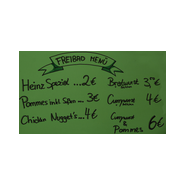 FREIBAD MENÜ
Heinz Spezial ...2€
Pommes inkl. Spar ...3€
Chicken Nuggets ...4€
Bratwurst 3,50€
Currywurst 4€
Currywurst &
Pommes 6€